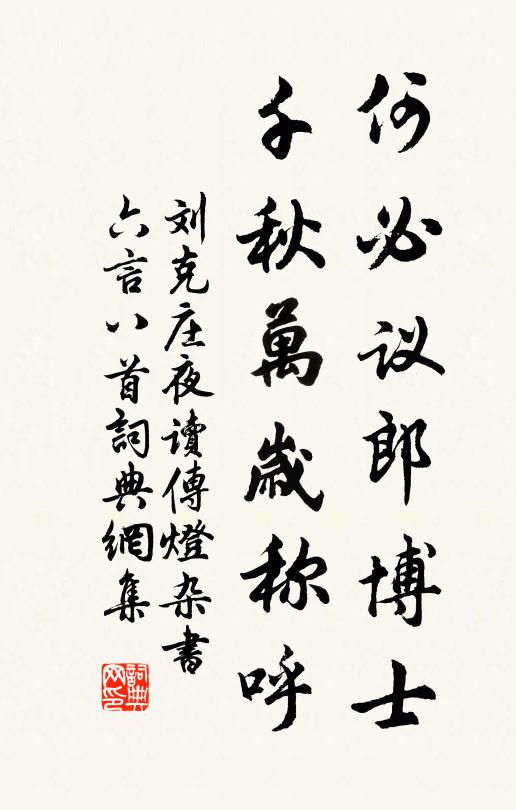 何必议郎博士
千秋萬歲称呼
刘克庄夜读傳燈杂書
六言八首詞典網集
詞典網印